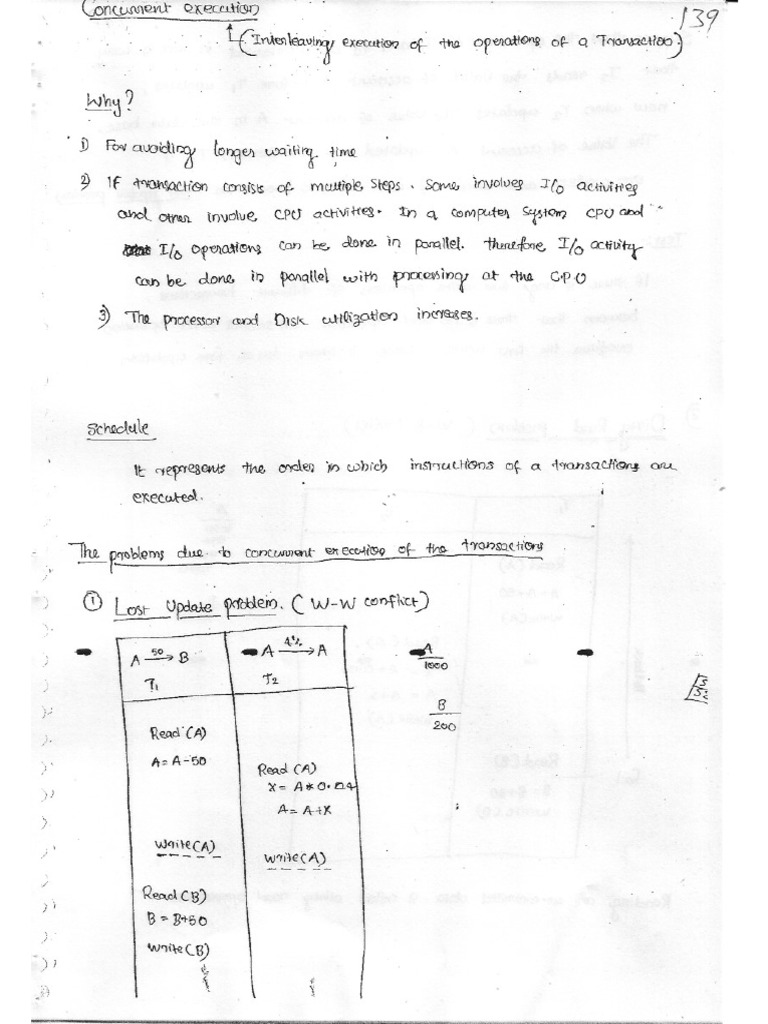 Concurrent execution
139
(Interleaving execution of the operations of a Transaction.)
Why?
1) For avoiding longer waiting time
2) If transaction consists of multiple steps. Some involves I/O activities
and other involve CPU activities. In a computer system CPU and
I/O operations can be done in parallel. therefore I/O activity
can be done in parallel with processing at the CPU
3) The processor and Disk utilization increases.
Schedule
It represents the order in which instructions of a transactions are
executed.
The problems due to concurrent execution of the transactions
① Lost Update problem. (W-W conflict)
A 50→ B
T1
A 4%→ A
T2
A
1000
B
200
Read(A)
A=A-50
Read(A)
X = A*0.04
A = A+X
Write(A)
Write(A)
Read(B)
B = B+50
Write(B)